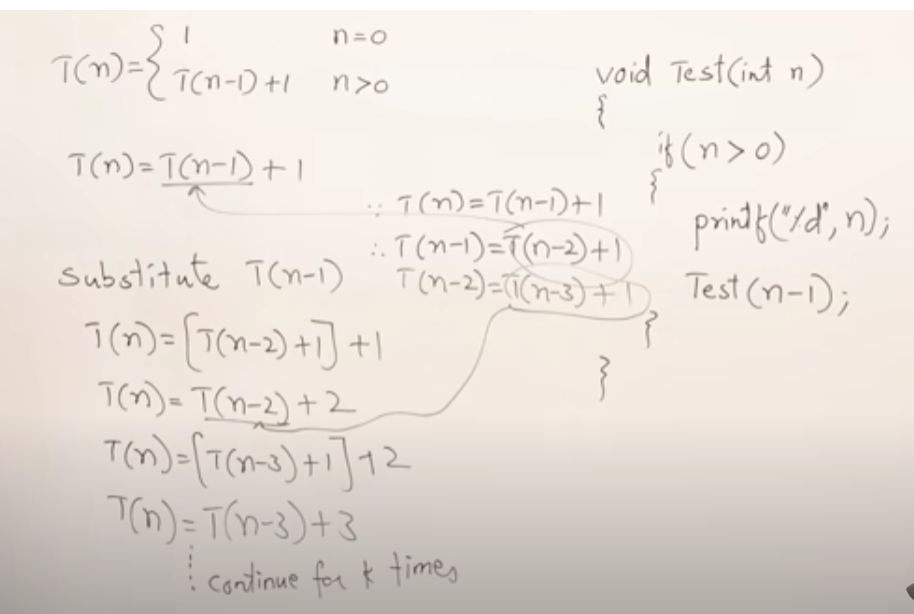 T(n)={ 1 n=0
T(n-1)+1 n>0
T(n)=T(n-1)+1
∵ T(n)=T(n-1)+1
∴ T(n-1)=T(n-2)+1
T(n-2)=T(n-3)+1
Substitute T(n-1)
T(n)=[T(n-2)+1]+1
T(n)=T(n-2)+2
T(n)=[T(n-3)+1]+2
T(n)=T(n-3)+3
⋮ continue for k times
void Test(int n)
{
if(n>0)
{
printf("%d",n);
Test(n-1);
}
}